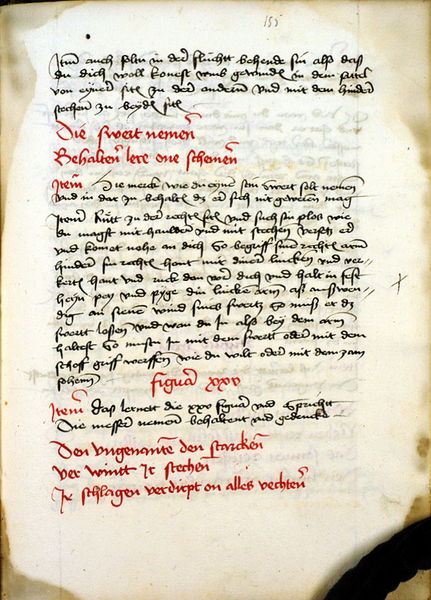 155
Item auch soltu in der fluchtt behende sin alß das
du dich woll konest vmb gewinden in dem sattel
von eyner sitt zu der anderen vnd mit dem hinder
stechen zu beyden sitt
Die swert nemen
Behalten lere one schemen
Item Die merck wie du eyne sin swert solt nemen
vnd in dar zu behalten das er sich nit geweren mag
Item Rytt zu der rechten sitt vnd such sin plos wie
du magst mit hauwen vnd mit stechen versetz er
vnd komet nohe an dich So begriff sine rechte arm
hinder sin rechte hant mit diner lincken vnd ver
kerten hant vnd ruck den vor dich vnd halt in fest
vnd pyge din lincken arm
swertt lossen vnd wan du In alß bey dem arm
haltest So mustu In mit dem swertt oder mit dem
schoff griff werffen wie du wolt oder mit dem zam
figur xxv
Item das lernett die xxv figur vnd Spruchtt
Die messer nemen behaltent vnd gedenck
Den vngenanten den starcken
ver wintt Ir stechen
Ir schlagen verdirpt on alles vechten